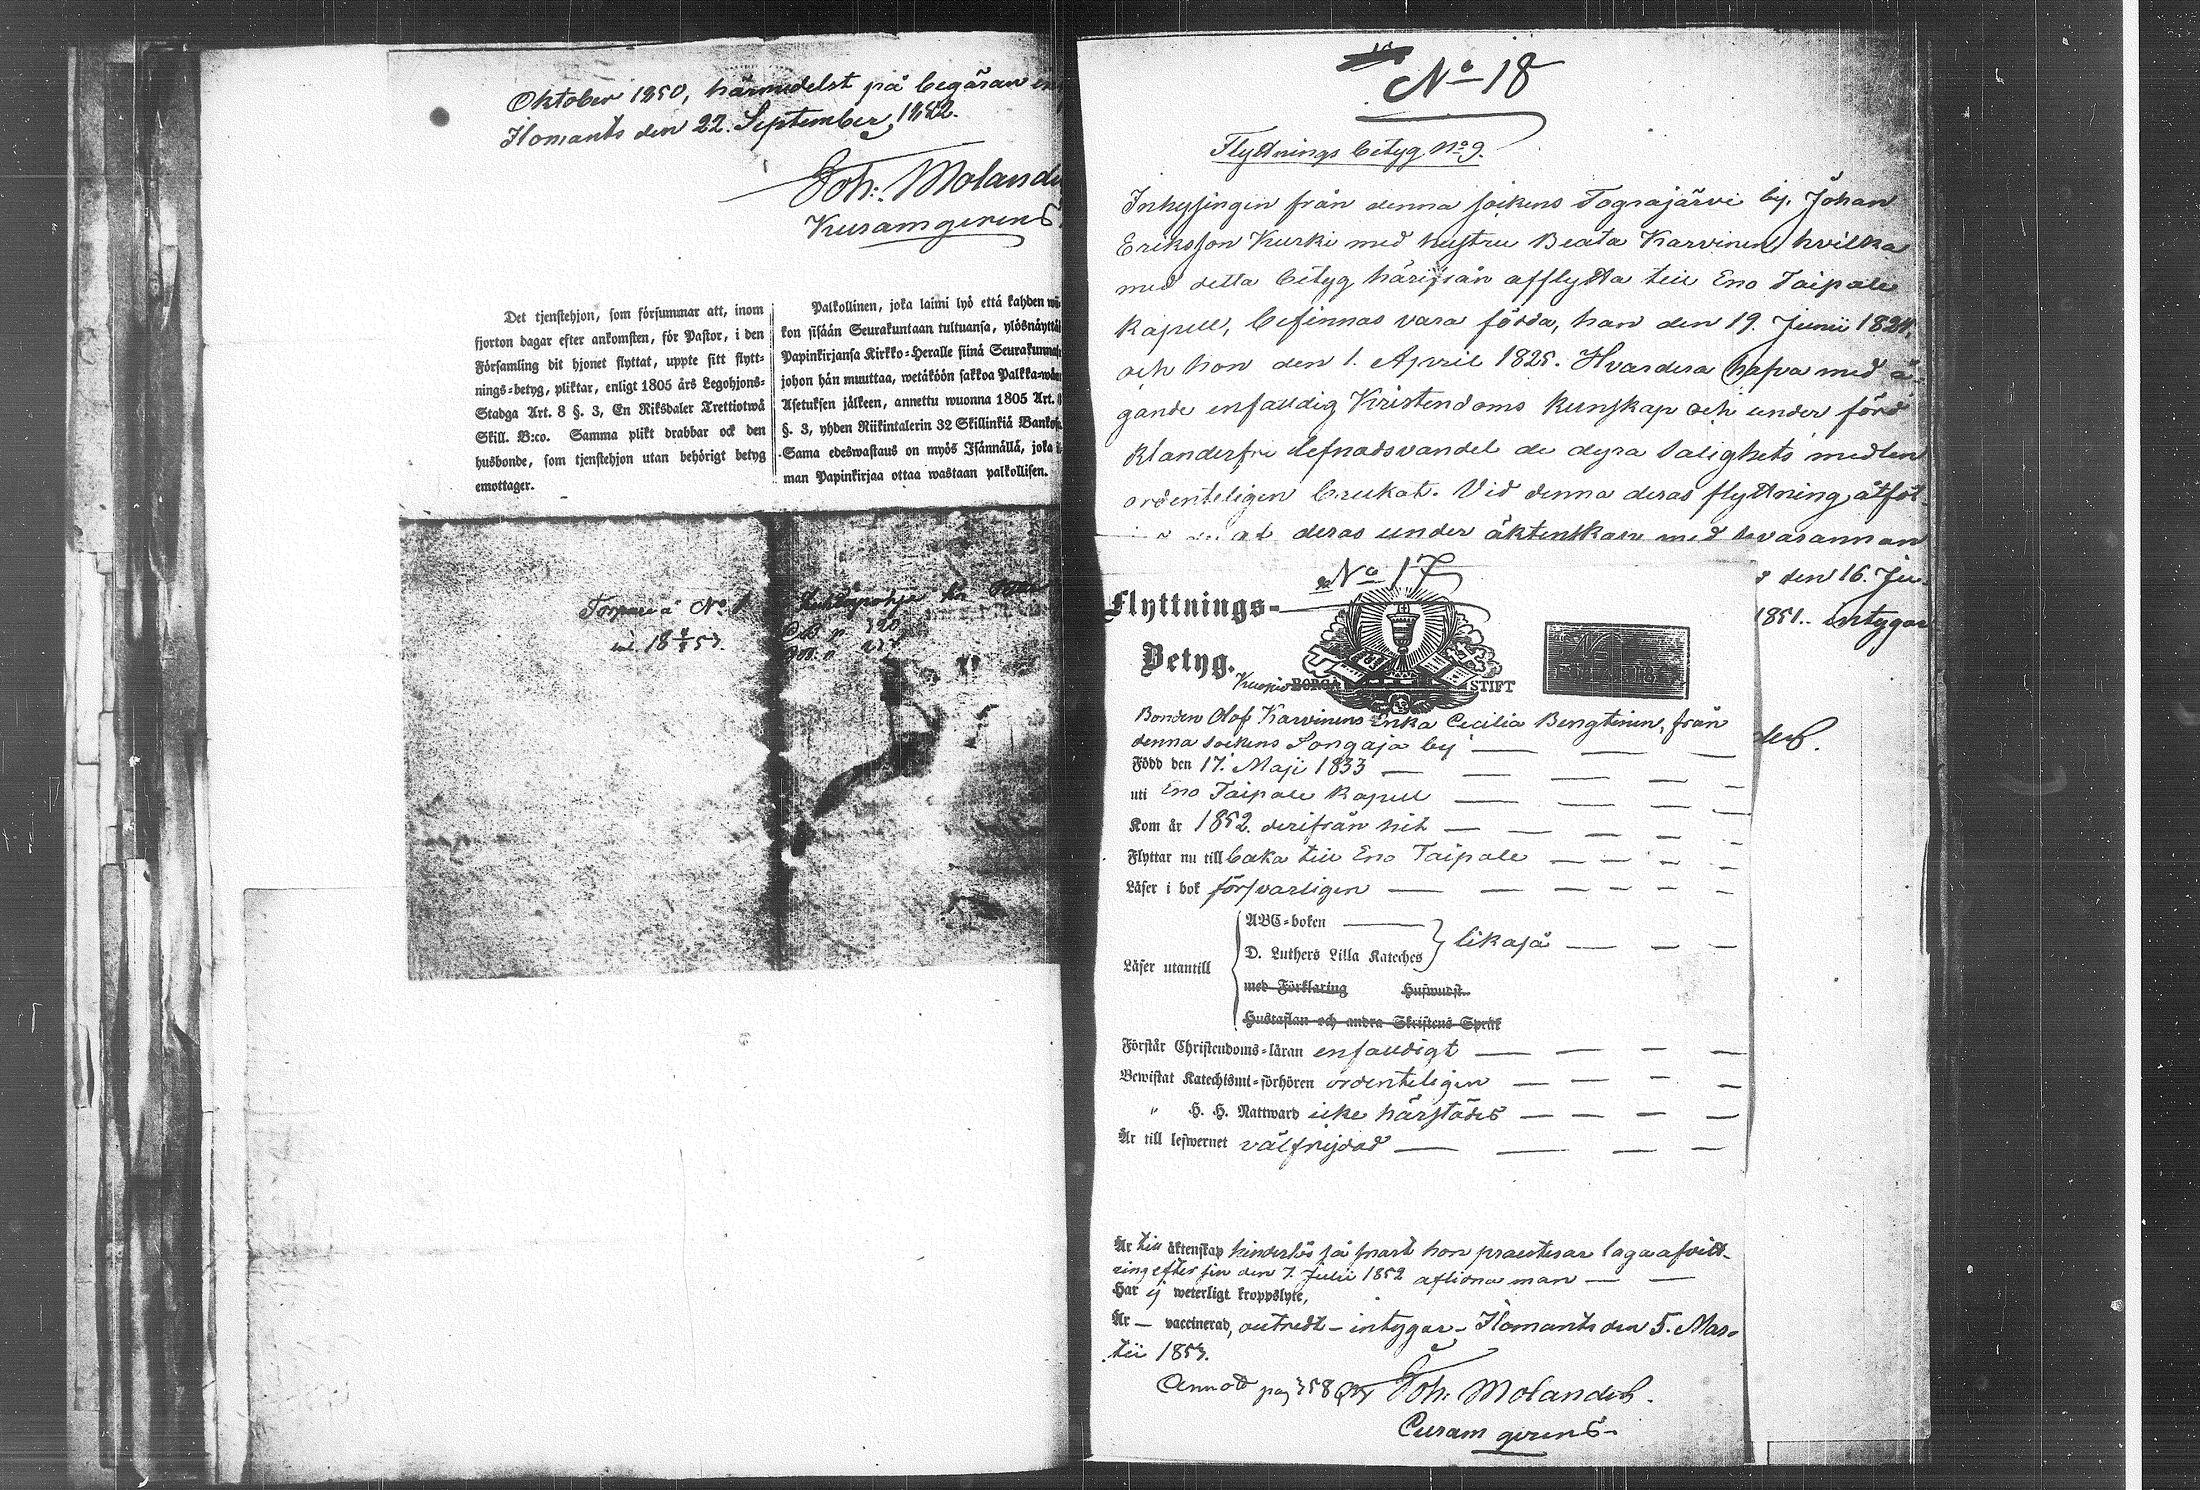 Oktober 1850, härmedelst på begäran
Ilomants den 22. September 1852.
Joh: Molander
Kuramgerens.
Det tjenstehjon, som försummar att, inom
fjorton dagar efter ankomsten, för Pastor, i den
Församling dit hjonet flyttat, uppte sitt flytt-
nings-betyg, pliktar, enligt 1805 års Legohjons-
Stadga Art. 8 §. 3, En Riksdaler Trettiotwå
Skill. B:co. Samma plikt drabbar ock den
husbonde, som tjenstehjon utan behörigt betyg
emottager.
Palkollinen, joka laimi lyö että kahden
kon sisään Seurakuntaan tultuansa, ylösnäyttä
Papinkirjansa Kirkko-Heralle siinä Seurakunna
johon hän muuttaa, wetäköön sakkoa Palkka-
Asetuksen jälkeen, annettu wuonna 1805 Art. 8
§. 3, yhden Riikintalerin 32 Skillinkiä Banko
Sama edeswastaus on myös Isännällä, joka
man Papinkirjaa ottaa wastaan palkollisen.
Torpare å No
No 18
Flyttnings betyg No 9.
Inhysingen från denna sockens Tograjärvi by, Johan
Eriksson Kurki med hustru Beata Karvinen, hvilka
med detta betyg härifrån afflytta till Eno Taipale
Kapell, befinnas vara födda, han den 19. Junii 1824,
och hon den 1. April 1825. Hvardera hafva med ä-
gande enfaldig Kristendoms kunskap och under förd
klanderfri lefnadsvandel de dyra salighets medlen
ordenteligen brukat. Vid denna deras flyttning åtföl-
deras under äktenskap med hvarannan
den 16. Ju-
1851. intygar
No 17
Flyttnings-
Betyg.
Kuopio BORGÅ STIFT
Bonden Olof Karvinens Enka Cecilia Bengtinen, från
denna sockens Songaja by
Född den 17. Maji 1833
uti Eno Taipale Kapell
Kom år 1852. derifrån hit
Flyttar nu till baka till Eno Taipale
Läser i bok försvarligen
ABC-boken
D. Luthers Lilla Kateches } likaså
Läser utantill
med Förklaring
Hustaflan och andra Skriftens Språk
Förstår Christendoms-läran enfaldigt
Bewistat Katechismi-förhören ordenteligen
" H. H. Nattward icke härstädes
Är till lefwernet välfrejdad
Är till äktenskap hinderlös så snart hon praesterar laga afvitt-
ring efter sin den 7. Julii 1852 aflidna man
Har ej weterligt kroppslyte,
Är — vaccinerad, attredt - intygar - Ilomants den 5. Mar-
tii 1853.
Annot pag 358
Joh: Molander.
Curam gerens.